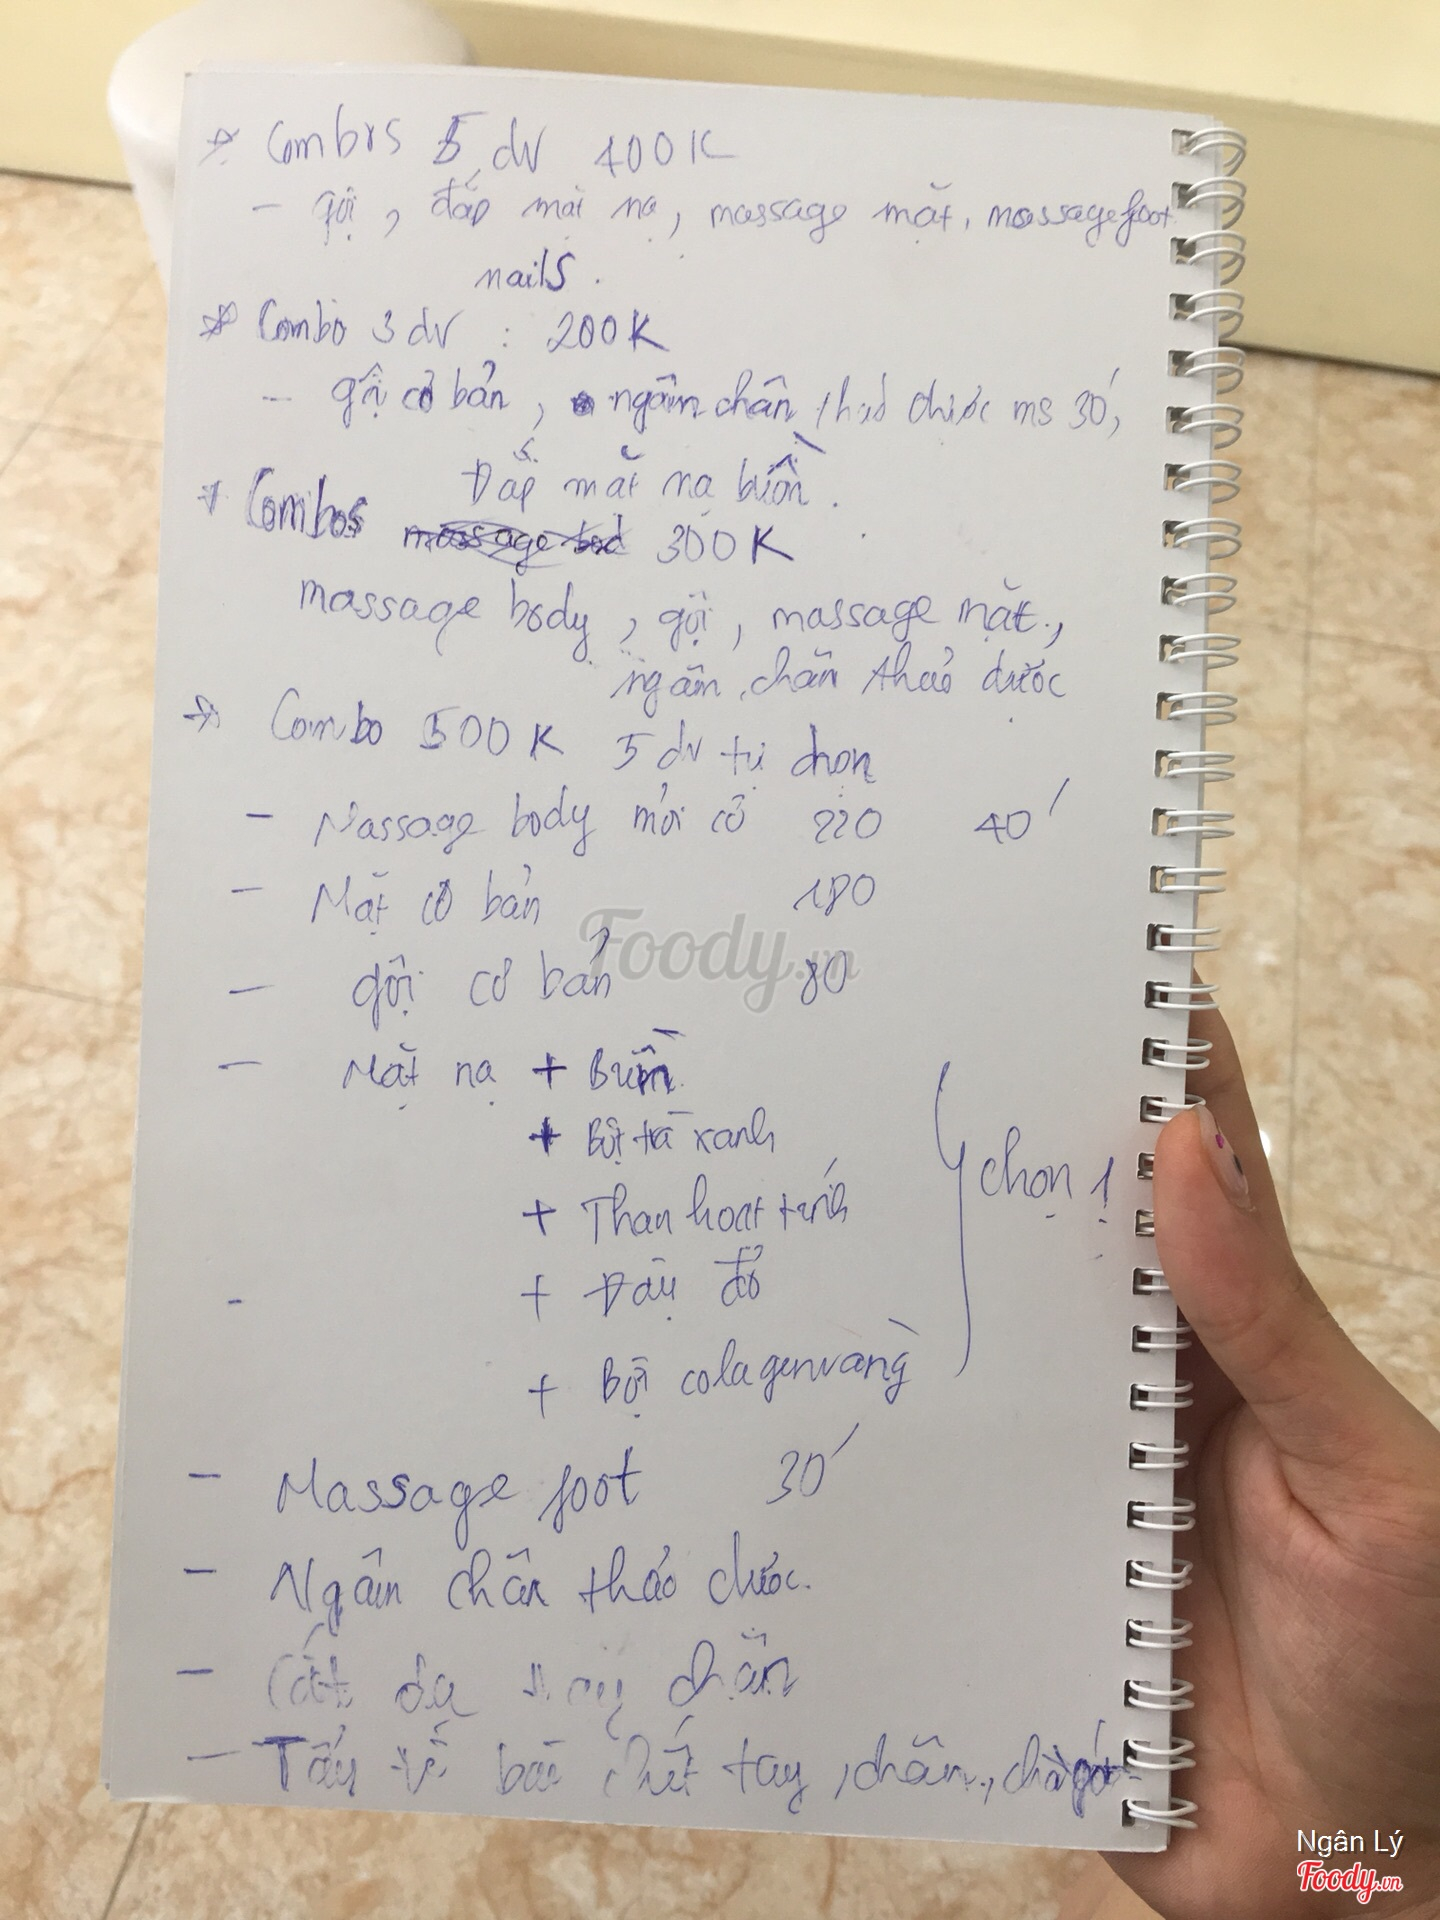 * Combos 5 dv 400K
- gội, đắp mặt nạ, massage mặt, massage foot
nails.
* Combo 3 dv : 200K
- gội cơ bản, ngâm chân thảo dược ms 30',
Đắp mặt nạ bùn.
* Combos 300K
massage body, gội, massage mặt,
ngâm chân thảo dược
* Combo 500K 5 dv tự chọn
- Massage body mỏi cổ 220 40'
- Mặt cơ bản 180
- gội cơ bản 80
- Mặt nạ + Bùn
+ Bột trà xanh
+ Than hoạt tính
+ Đậu đỏ
+ Bột colagen vàng
chọn 1
- Massage foot 30'
- Ngâm chân thảo dược.
- Cắt da tay chân
- Tẩy tế bào chết tay, chân, chà gót
Foody.vn
Ngân Lý
Foody.vn